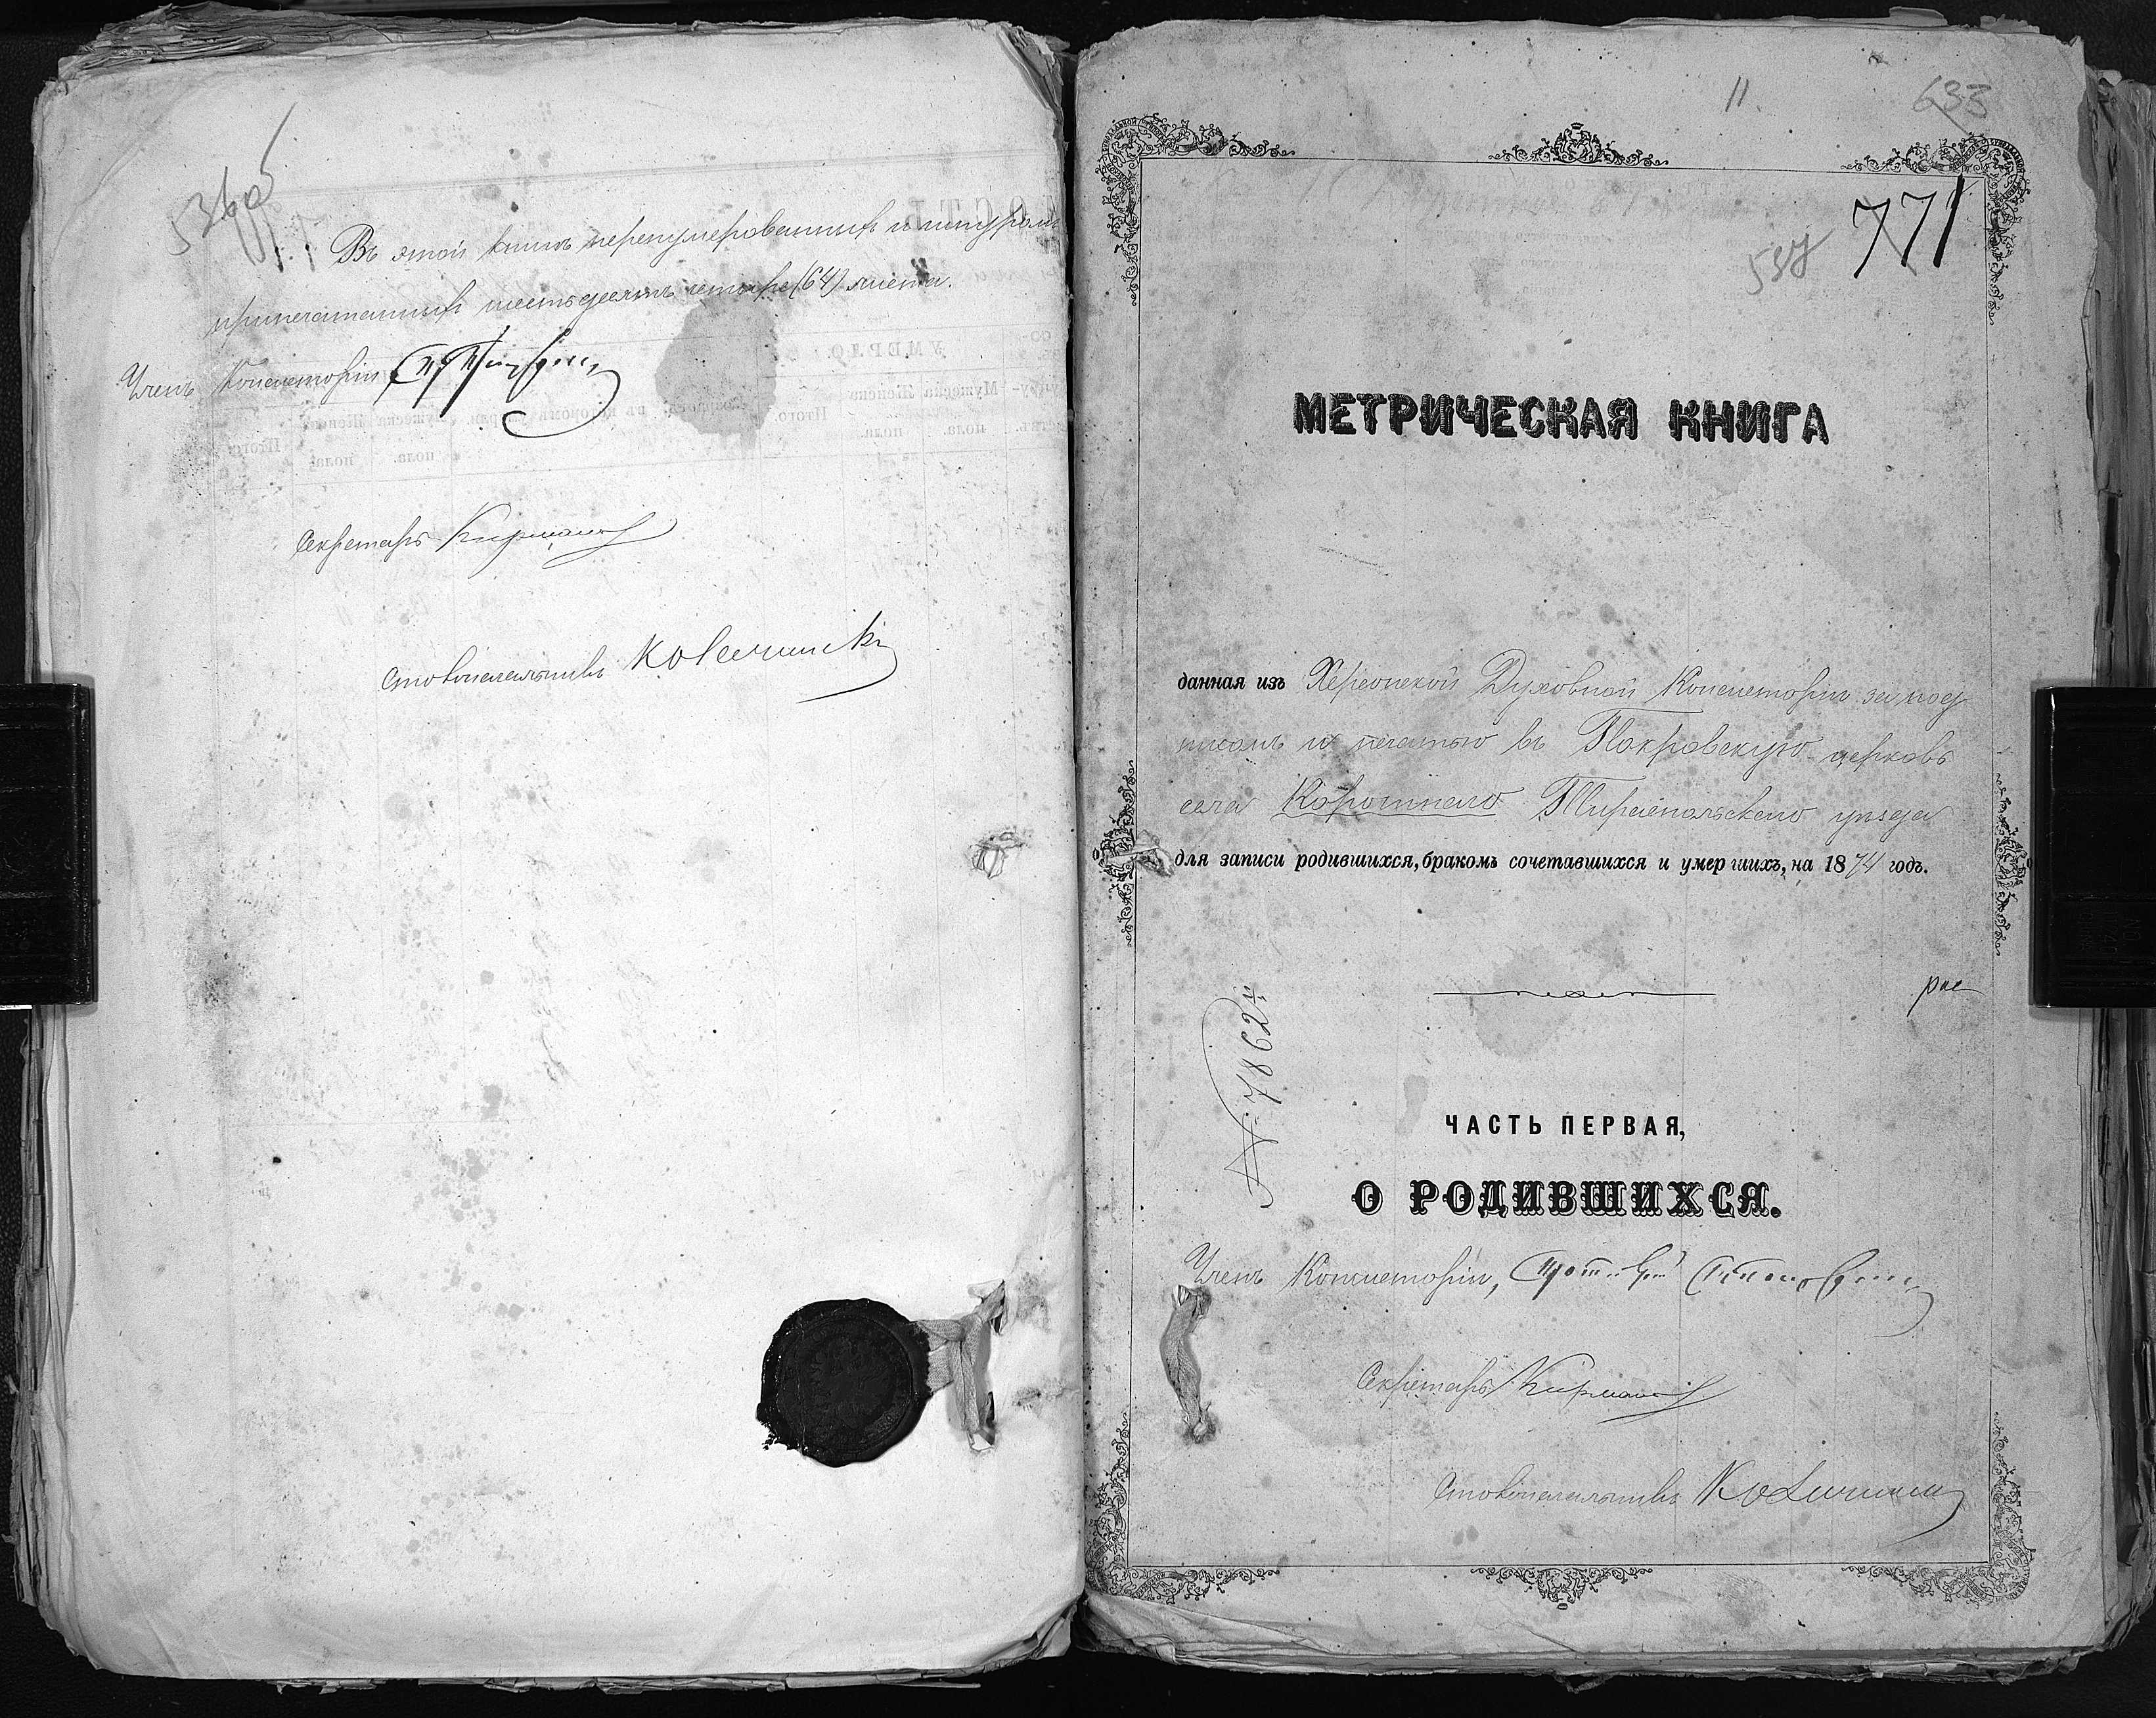 536об
Въ этой книгѣ перенумерованныхъ и шнуромъ
припечатанныхъ шестьдесятъ четыре (64) листа.
Членъ Консисторіи
Секретарь
Столоначальникъ
11.
633
771
537
МЕТРИЧЕСКАЯ КНИГА
данная изъ Херсонской Духовной Консисторіи за под
писомъ и печатью въ Покровскую церковь
села Коротнаго Тираспольскаго уѣзда
для записи родившихся, бракомъ сочетавшихся и умершихъ, на 1874 годъ.
№ 7862
ЧАСТЬ ПЕРВАЯ,
О РОДИВШИХСЯ.
Членъ Консисторіи,
Секретарь
Столоначальникъ